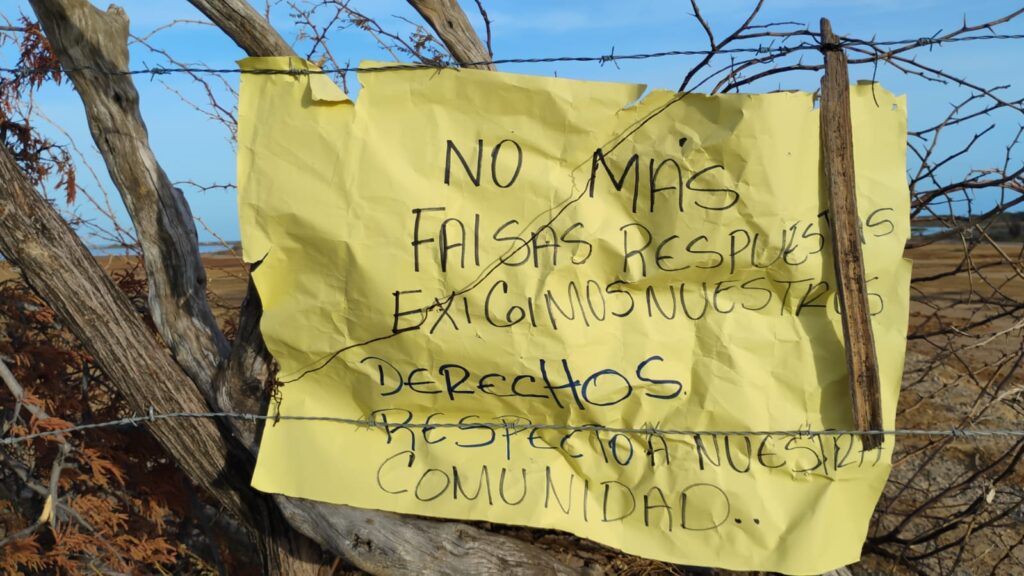 NO MÁS
FALSAS RESPUESTAS
EXIGIMOS NUESTROS
DERECHOS.
RESPECTO A NUESTRA
COMUNIDAD..